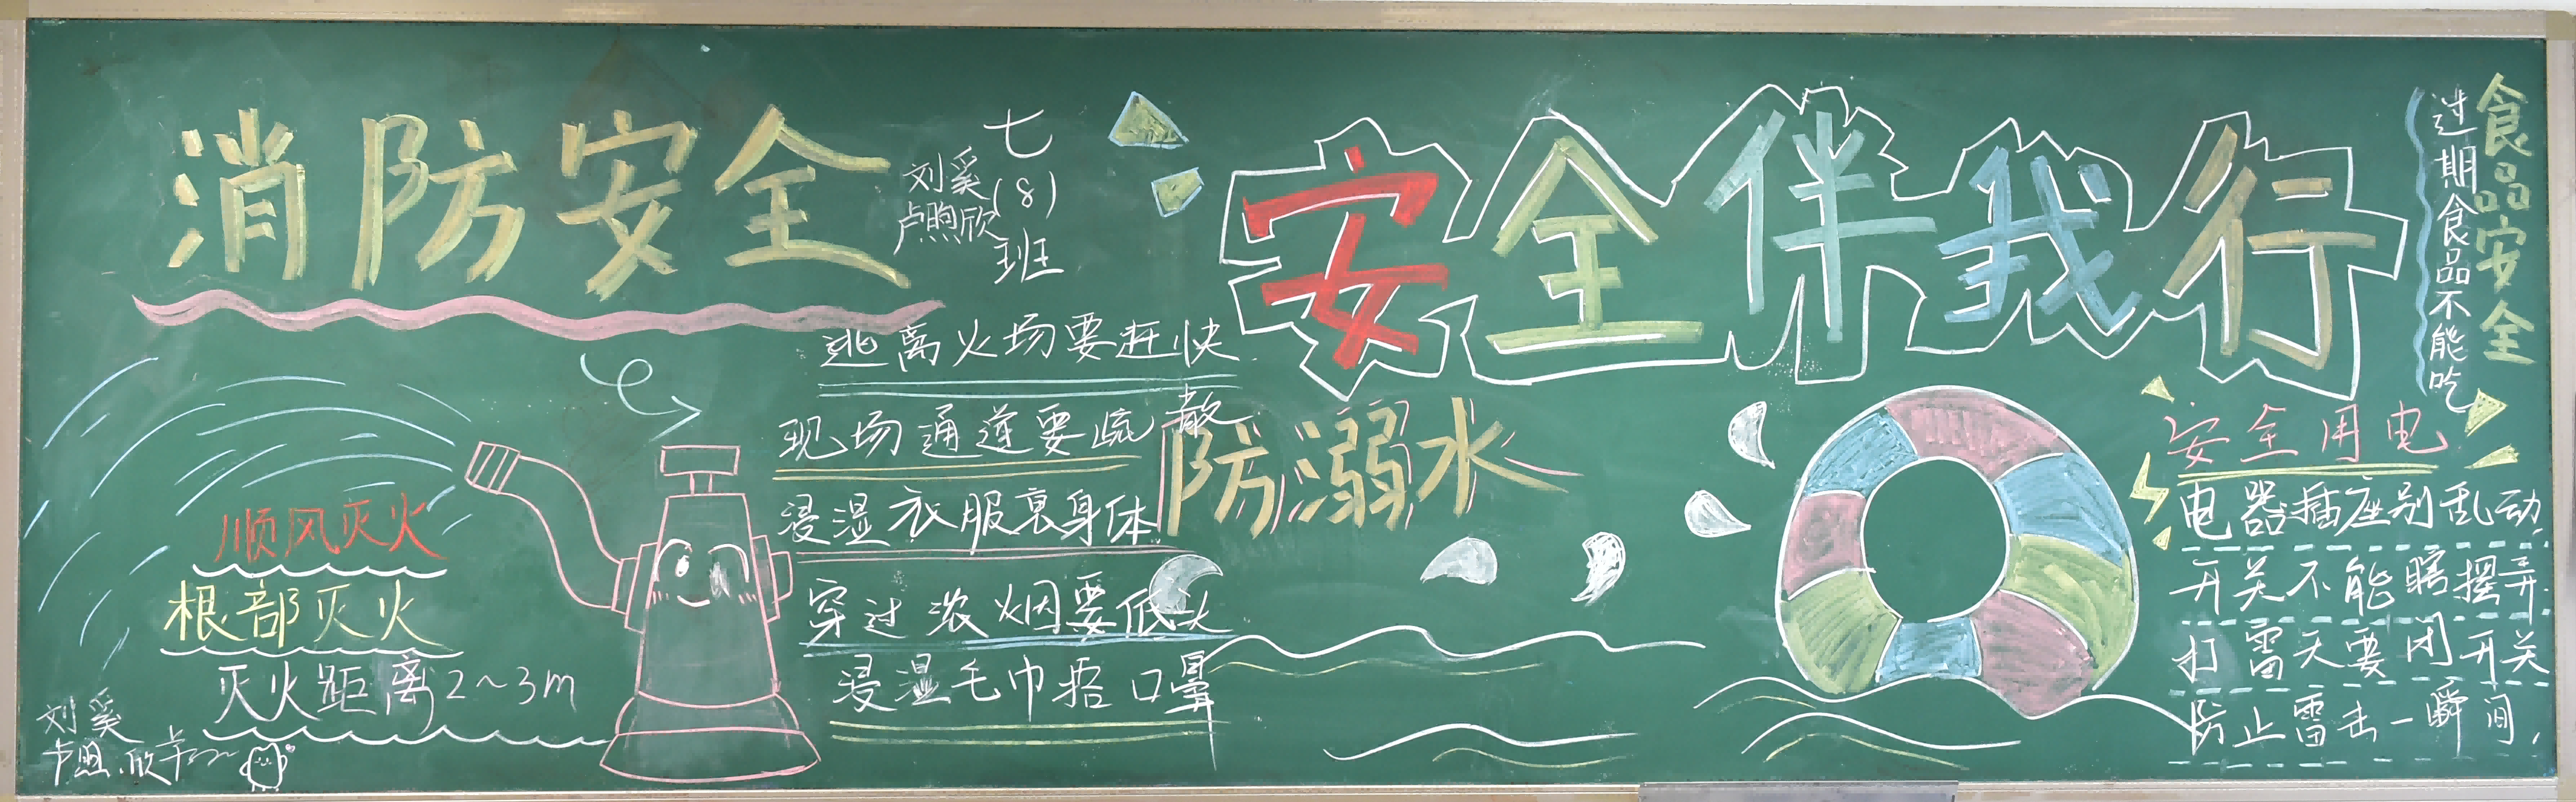 消防安全
七(8)班
刘奚
卢煦欣
安全伴我行
食品安全
过期食品不能吃
逃离火场要赶快
现场通道要疏散
浸湿衣服裹身体
穿过浓烟要低头
浸湿毛巾捂口鼻
顺风灭火
根部灭火
灭火距离2~3m
刘奚
防溺水
安全用电
电器插座别乱动
开关不能瞎摆弄
打雷天要闭开关
防止雷击一瞬间,